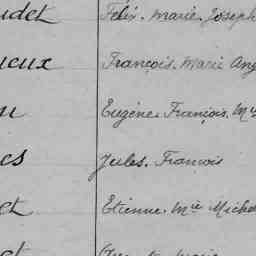 udet Félix. Marie. Joseph
ueux François. Marie Ang
Eugène. François. Mie
es Jules. François
et Etienne. Mie Michel
et